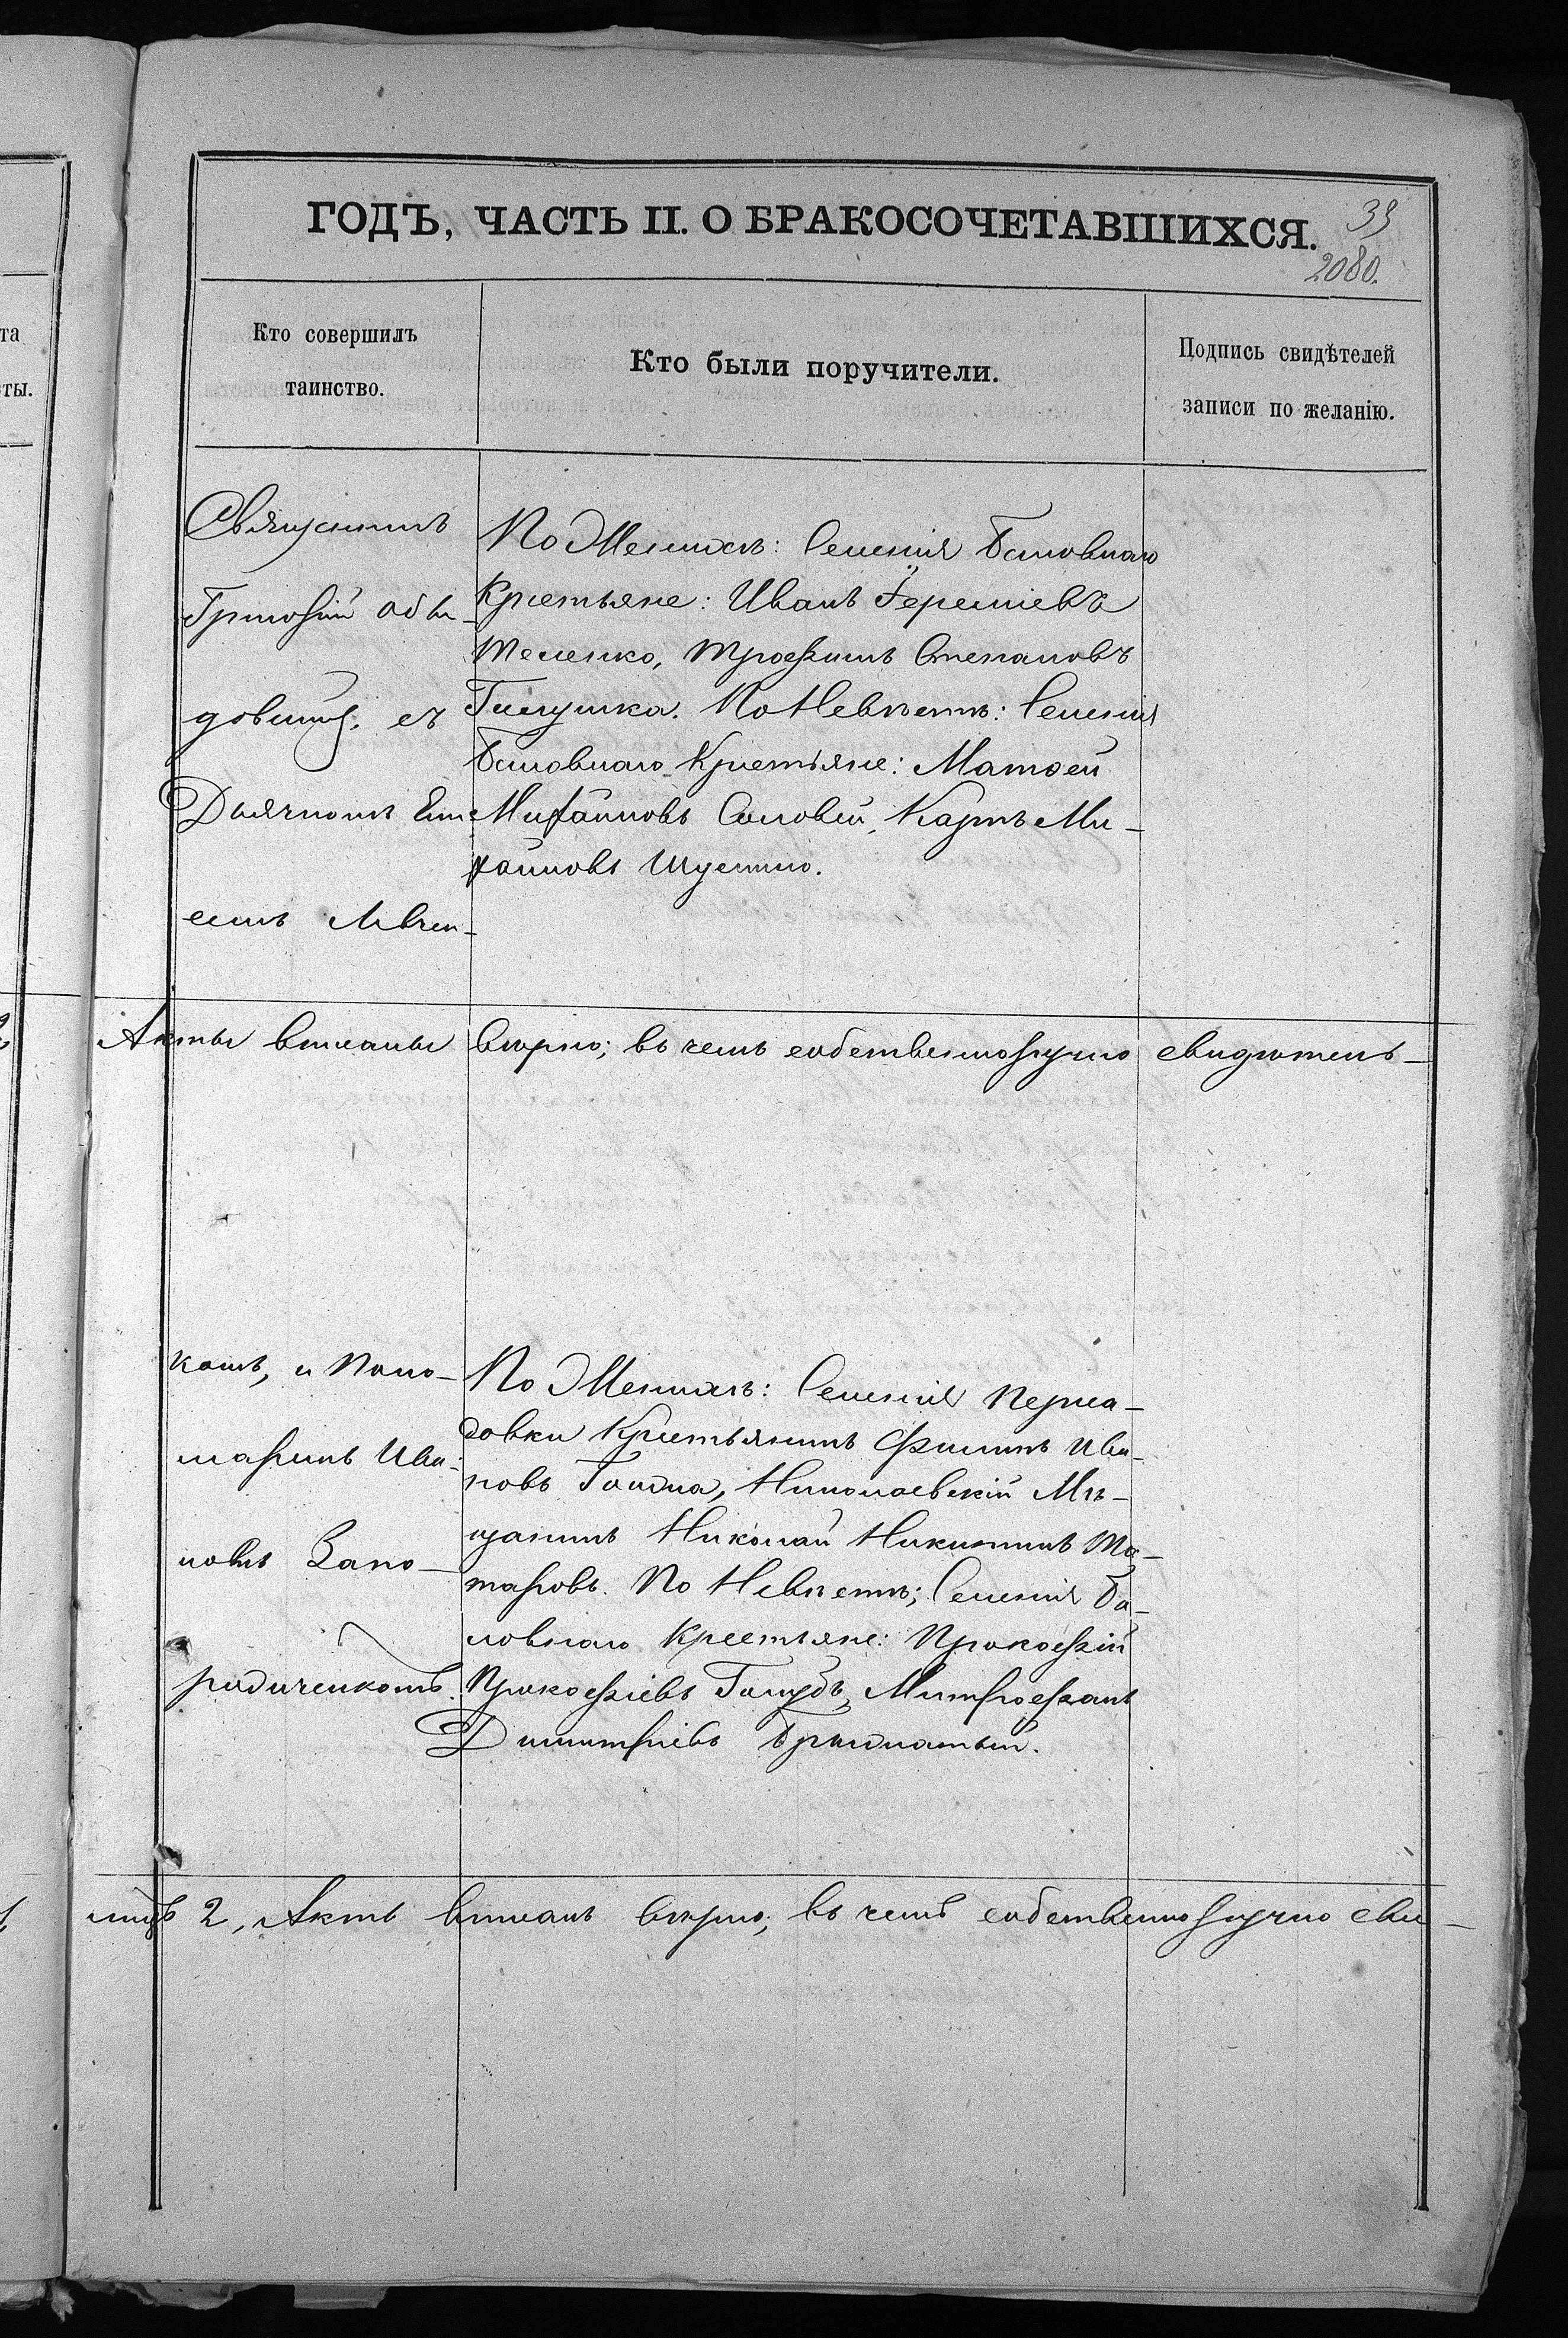 ГОДЪ, ЧАСТЬ II. О БРАКОСОЧЕТАВШИХСЯ.
39
2080.
Кто совершилъ
таинство.
Кто были поручители.
Подпись свидѣтелей
записи по желанію.
та
ты.
Священникъ
Григорій
съ
Дьячкомъ
По Женихѣ: Селенія Баловнаго
Крестьяне: Иванъ Іереміевъ
Трофимъ Степановъ
По Невѣстѣ: Селенія
Баловнаго Крестьяне: Матѳей
Михайловъ Соловей, Карпъ Ми-
хайловъ
Акты вписаны вѣрно; въ чемъ собственноручно свидѣтель-
комъ, и Поно-
маремъ Ива-
новымъ Запо-
родиченкомъ.
По Женихѣ: Селенія Перша-
довки Крестьянинъ Филипъ Ива-
новъ Николаевскій Мѣ-
щанинъ Николай Никитинъ Та-
таровъ. По Невѣстѣ; Селенія Ба-
ловнаго Крестьяне: Прокофій
Прокофіевъ Голубъ, Митрофанъ
Димитріевъ
2, Актъ вписанъ вѣрно; въ чемъ собственноручно сви-